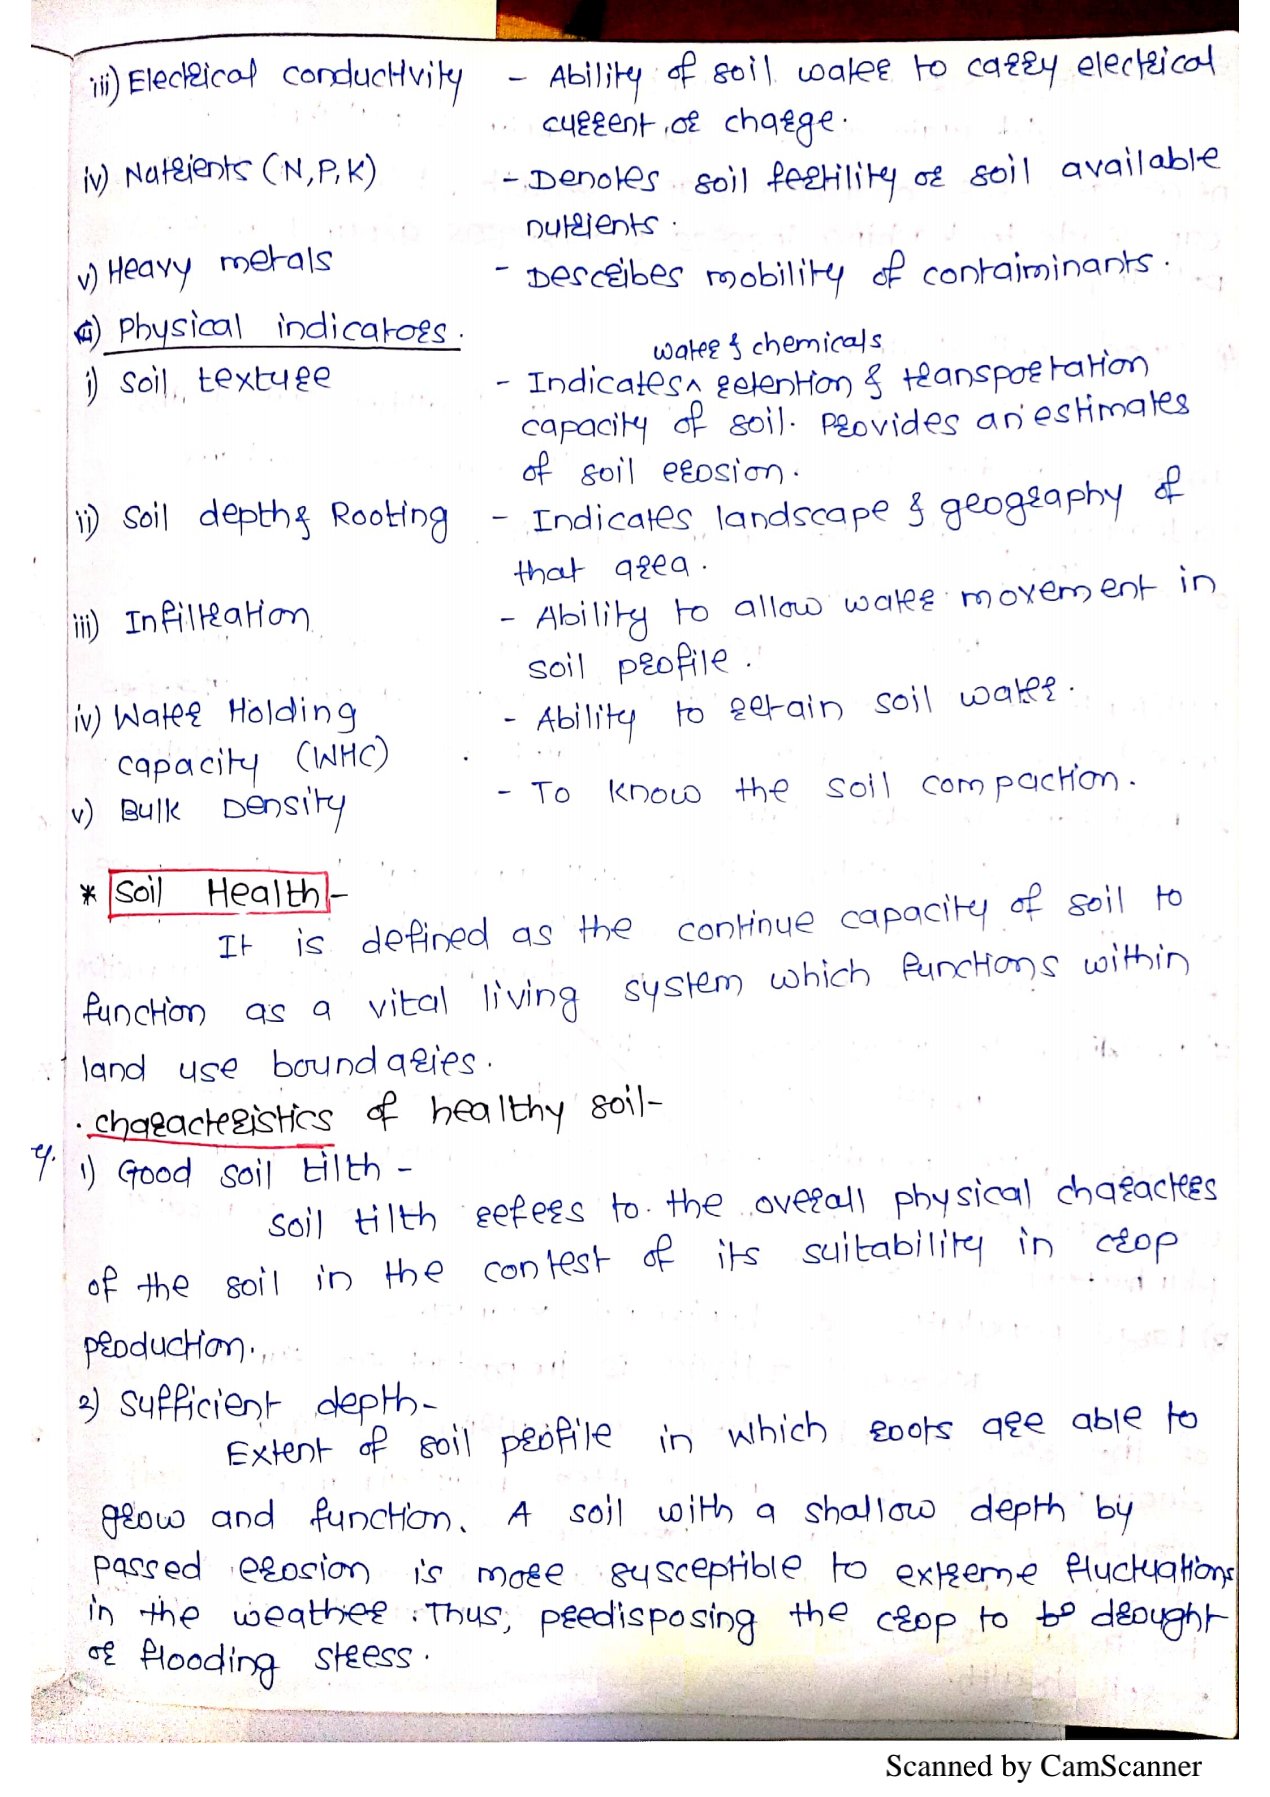 iii) Electrical conductivity - Ability of soil water to carry electrical
current, or charge.
iv) Nutrients (N, P, K) - Denotes soil fertility or soil available
nutrients.
v) Heavy metals - Describes mobility of contaiminants.
Physical indicators.
water & chemicals
i) Soil texture - Indicates ^ retention & transportation
capacity of soil. Provides an estimates
of soil erosion.
ii) Soil depth & Rooting - Indicates landscape & geography of
that area.
iii) Infiltration - Ability to allow water movement in
soil profile.
iv) Water Holding - Ability to retain soil water.
capacity (WHC)
v) Bulk Density - To know the soil compaction.
* Soil Health -
It is defined as the continue capacity of soil to
function as a vital living system which functions within
land use boundaries.
. characteristics of healthy soil-
1) Good soil tilth -
soil tilth refers to the overall physical characters
of the soil in the contest of its suitability in crop
production.
2) Sufficient depth-
Extent of soil profile in which roots are able to
grow and function. A soil with a shallow depth by
passed erosion is more susceptible to extreme fluctuations
in the weather. Thus, predisposing the crop to to drought
or flooding stress.
Scanned by CamScanner